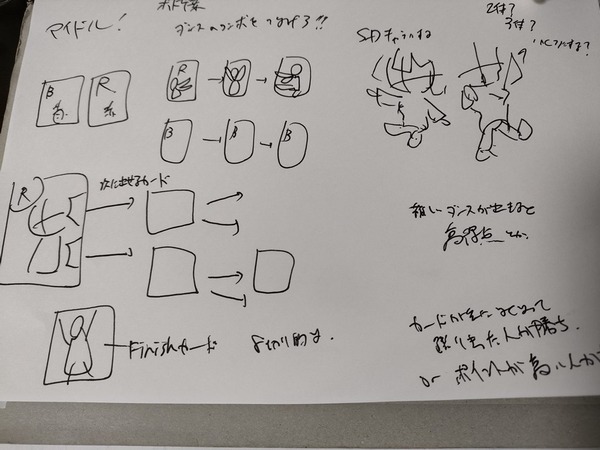 アイドル!
ダンスのコンボをつなげろ!!
SDキャラにする
2体?
3体?
B
青
R
赤
R
B
B
B
R
次に出せるカード
難しいダンスが出せると
高得点とか
Finishカード
8切り的な
カードが出せなくなって
踊り切った人が勝ち.
or ポイントが高い人が